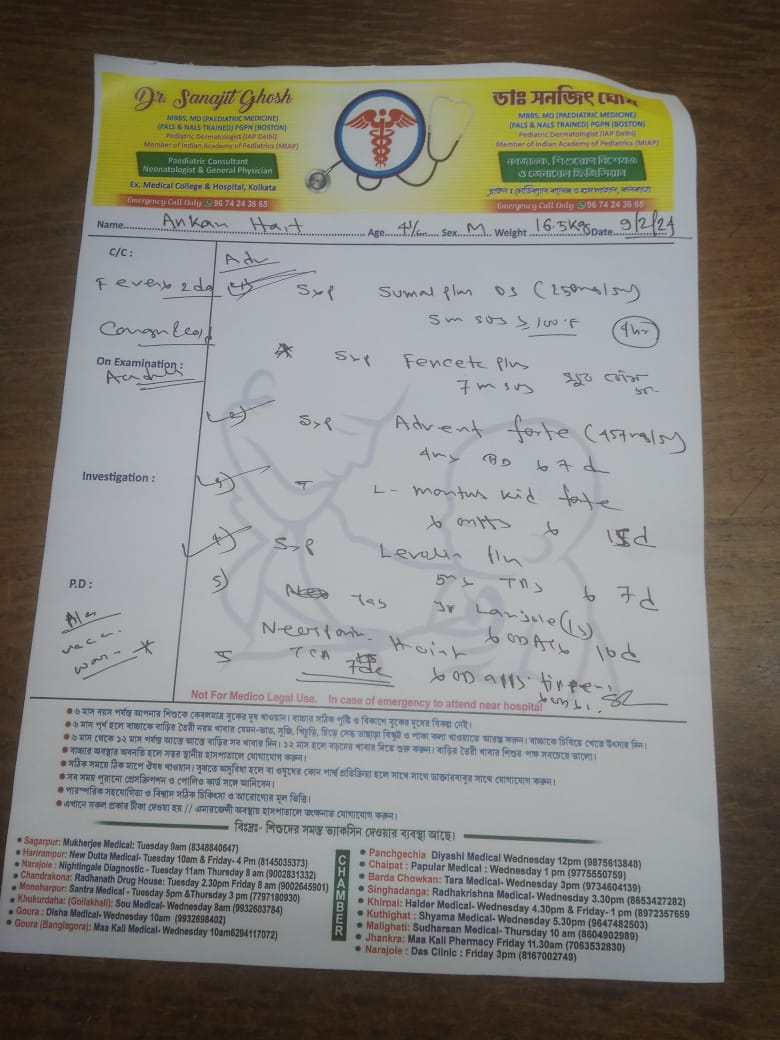 Dr. Sanajit Ghosh
MBBS, MD (PAEDIATRIC MEDICINE)
(PALS & NALS TRAINED) PGPN (BOSTON)
Pediatric Dermatologist (IAP Delhi)
Member of Indian Academy of Pediatrics (MIAP)
Paediatric Consultant
Neonatologist & General Physician
Ex. Medical College & Hospital, Kolkata
Emergency Call Only 96 74 24 36 65
ডাঃ সনজিৎ ঘোষ
MBBS, MD (PAEDIATRIC MEDICINE)
(PALS & NALS TRAINED) PGPN (BOSTON)
Pediatric Dermatologist (IAP Delhi)
Member of Indian Academy of Pediatrics (MIAP)
নবজাতক, শিশুরোগ বিশেষজ্ঞ
ও জেনারেল ফিজিসিয়ান
প্রাক্তন : মেডিক্যাল কলেজ ও হাসপাতাল, কলকাতা
Emergency Call Only 96 74 24 36 65
Name Ankan Hait Age Sex M Weight 16.5kg Date 9/2/24
C/C :
Adv
Fever x 2 d
Syp Sumol plus DS (250mg/5ml)
5 ml sos ≥ 100°F
Cough & cold
On Examination :
Syp
7 ml sos
Syp Advent forte (457mg/5ml)
BD 7 d
Investigation :
T L-montus kid forte
15d
4) Syp Levolin plus
TDS 7 d
P.D :
5) Tab Jr Lanzole (15)
10 d
Not For Medico Legal Use. In case of emergency to attend near hospital
৬ মাস বয়স পর্যন্ত আপনার শিশুকে কেবলমাত্র বুকের দুধ খাওয়ান। বাচ্চার সঠিক পুষ্টি ও বিকাশে বুকের দুধের বিকল্প নেই।
৬ মাস পূর্ণ হলে বাচ্চাকে বাড়ির তৈরী নরম খাবার যেমন-ভাত, সুজি, খিচুড়ি, চিঁড়ে সেদ্ধ তাছাড়া বিস্কুট ও পাকা কলা খাওয়াতে আরম্ভ করুন। বাচ্চাকে চিবিয়ে খেতে উৎসাহ দিন।
৬ মাস থেকে ১২ মাস পর্যন্ত আস্তে আস্তে বাড়ির সব খাবার দিন। ১২ মাস হলে বড়দের খাবার দিতে শুরু করুন। বাড়ির তৈরী খাবার শিশুর পক্ষে সবচেয়ে ভালো।
বাচ্চার অবস্থার অবনতি হলে সত্বর স্থানীয় হাসপাতালে যোগাযোগ করুন।
সঠিক সময়ে ঠিক মাপে ঔষধ খাওয়ান। বুঝতে অসুবিধা হলে বা ওষুধের কোন পার্শ্ব প্রতিক্রিয়া হলে সাথে সাথে ডাক্তারবাবুর সাথে যোগাযোগ করুন।
সব সময় পুরানো প্রেসক্রিপশন ও পোলিও কার্ড সঙ্গে আনিবেন।
পারস্পরিক সহযোগিতা ও বিশ্বাস সঠিক চিকিৎসা ও আরোগ্যের মূল ভিত্তি।
এখানে সকল প্রকার টীকা দেওয়া হয় // এমারজেন্সী অবস্থায় হাসপাতালে তৎক্ষনাত যোগাযোগ করুন।
বিঃদ্রঃ- শিশুদের সমস্ত ভ্যাকসিন দেওয়ার ব্যবস্থা আছে।
CHAMBER
Sagarpur: Mukherjee Medical: Tuesday 9am (8348840647)
Harirampur: New Dutta Medical- Tuesday 10am & Friday- 4 Pm (8145035373)
Narajole : Nightingale Diagnostic - Tuesday 11am Thursday 8 am (9002831332)
Chandrakona: Radhanath Drug House: Tuesday 2.30pm Friday 8 am (9002645901)
Monoharpur: Santra Medical - Tuesday 5pm &Thursday 3 pm (7797180930)
Khukurdaha: (Goilakhali): Sou Medical- Wednesday 8am (9932603784)
Goura : Disha Medical- Wednesday 10am (9932698402)
Goura (Banglagora): Maa Kali Medical- Wednesday 10am6294117072)
Panchgechia Diyashi Medical Wednesday 12pm (9875613848)
Chaipat : Papular Medical : Wednesday 1 pm (9775550759)
Barda Chowkan: Tara Medical- Wednesday 3pm (9734604139)
Singhadanga: Radhakrishna Medical- Wednesday 3.30pm (8653427282)
Khirpai: Halder Medical- Wednesday 4.30pm & Friday- 1 pm (8972357659
Kuthighat : Shyama Medical- Wednesday 5.30pm (9647482503)
Malighati: Sudharsan Medical- Thursday 10 am (8604902989)
Jhankra: Maa Kali Pharmacy Friday 11.30am (7063532830)
Narajole : Das Clinic : Friday 3pm (8167002749)